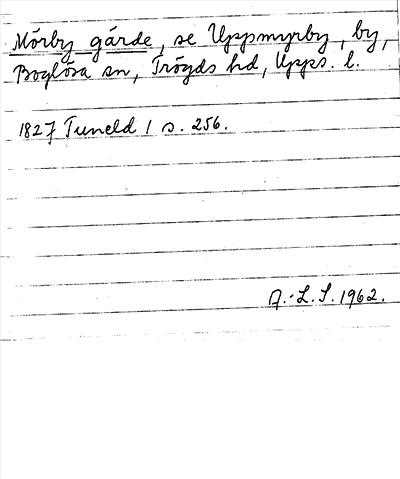 Mörby gärde, se Uppmyrby, by,
Boglösa sn, Trögds hd, Upps. l.
1827 Tuneld 1 s. 256.
A.-L.S. 1962.